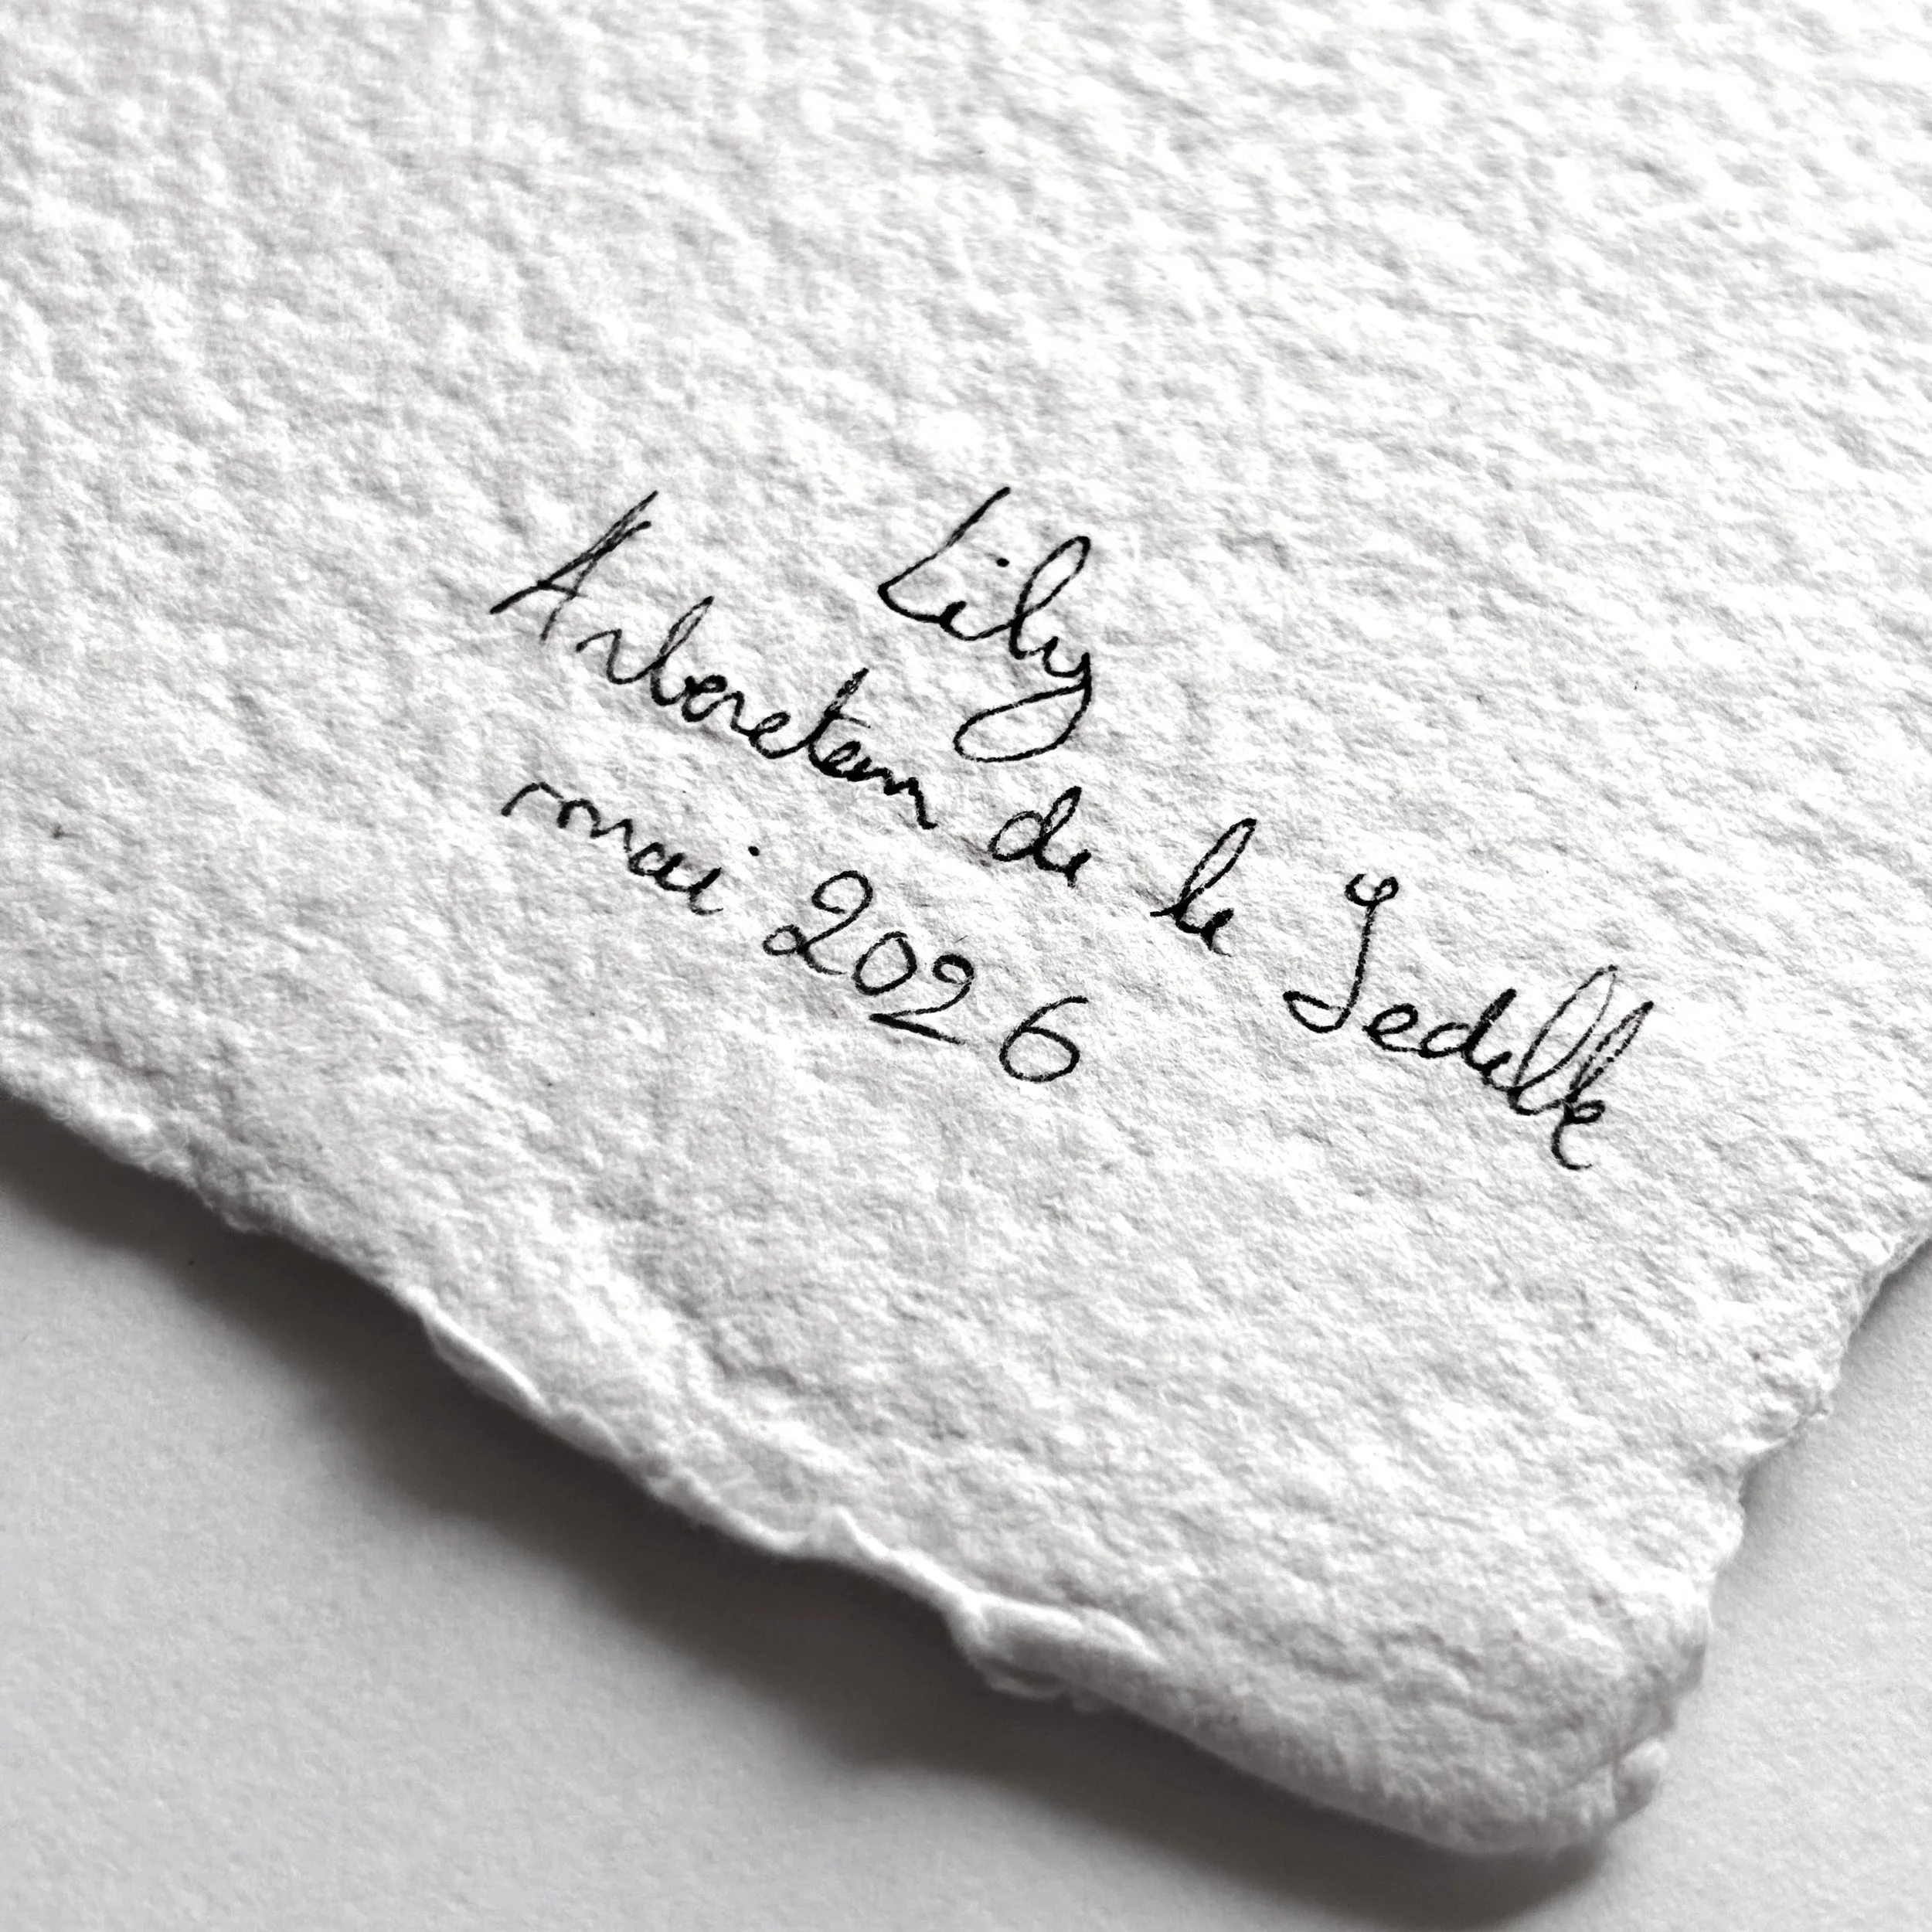 Lily
Arboretum de la Sedelle
mai 2026